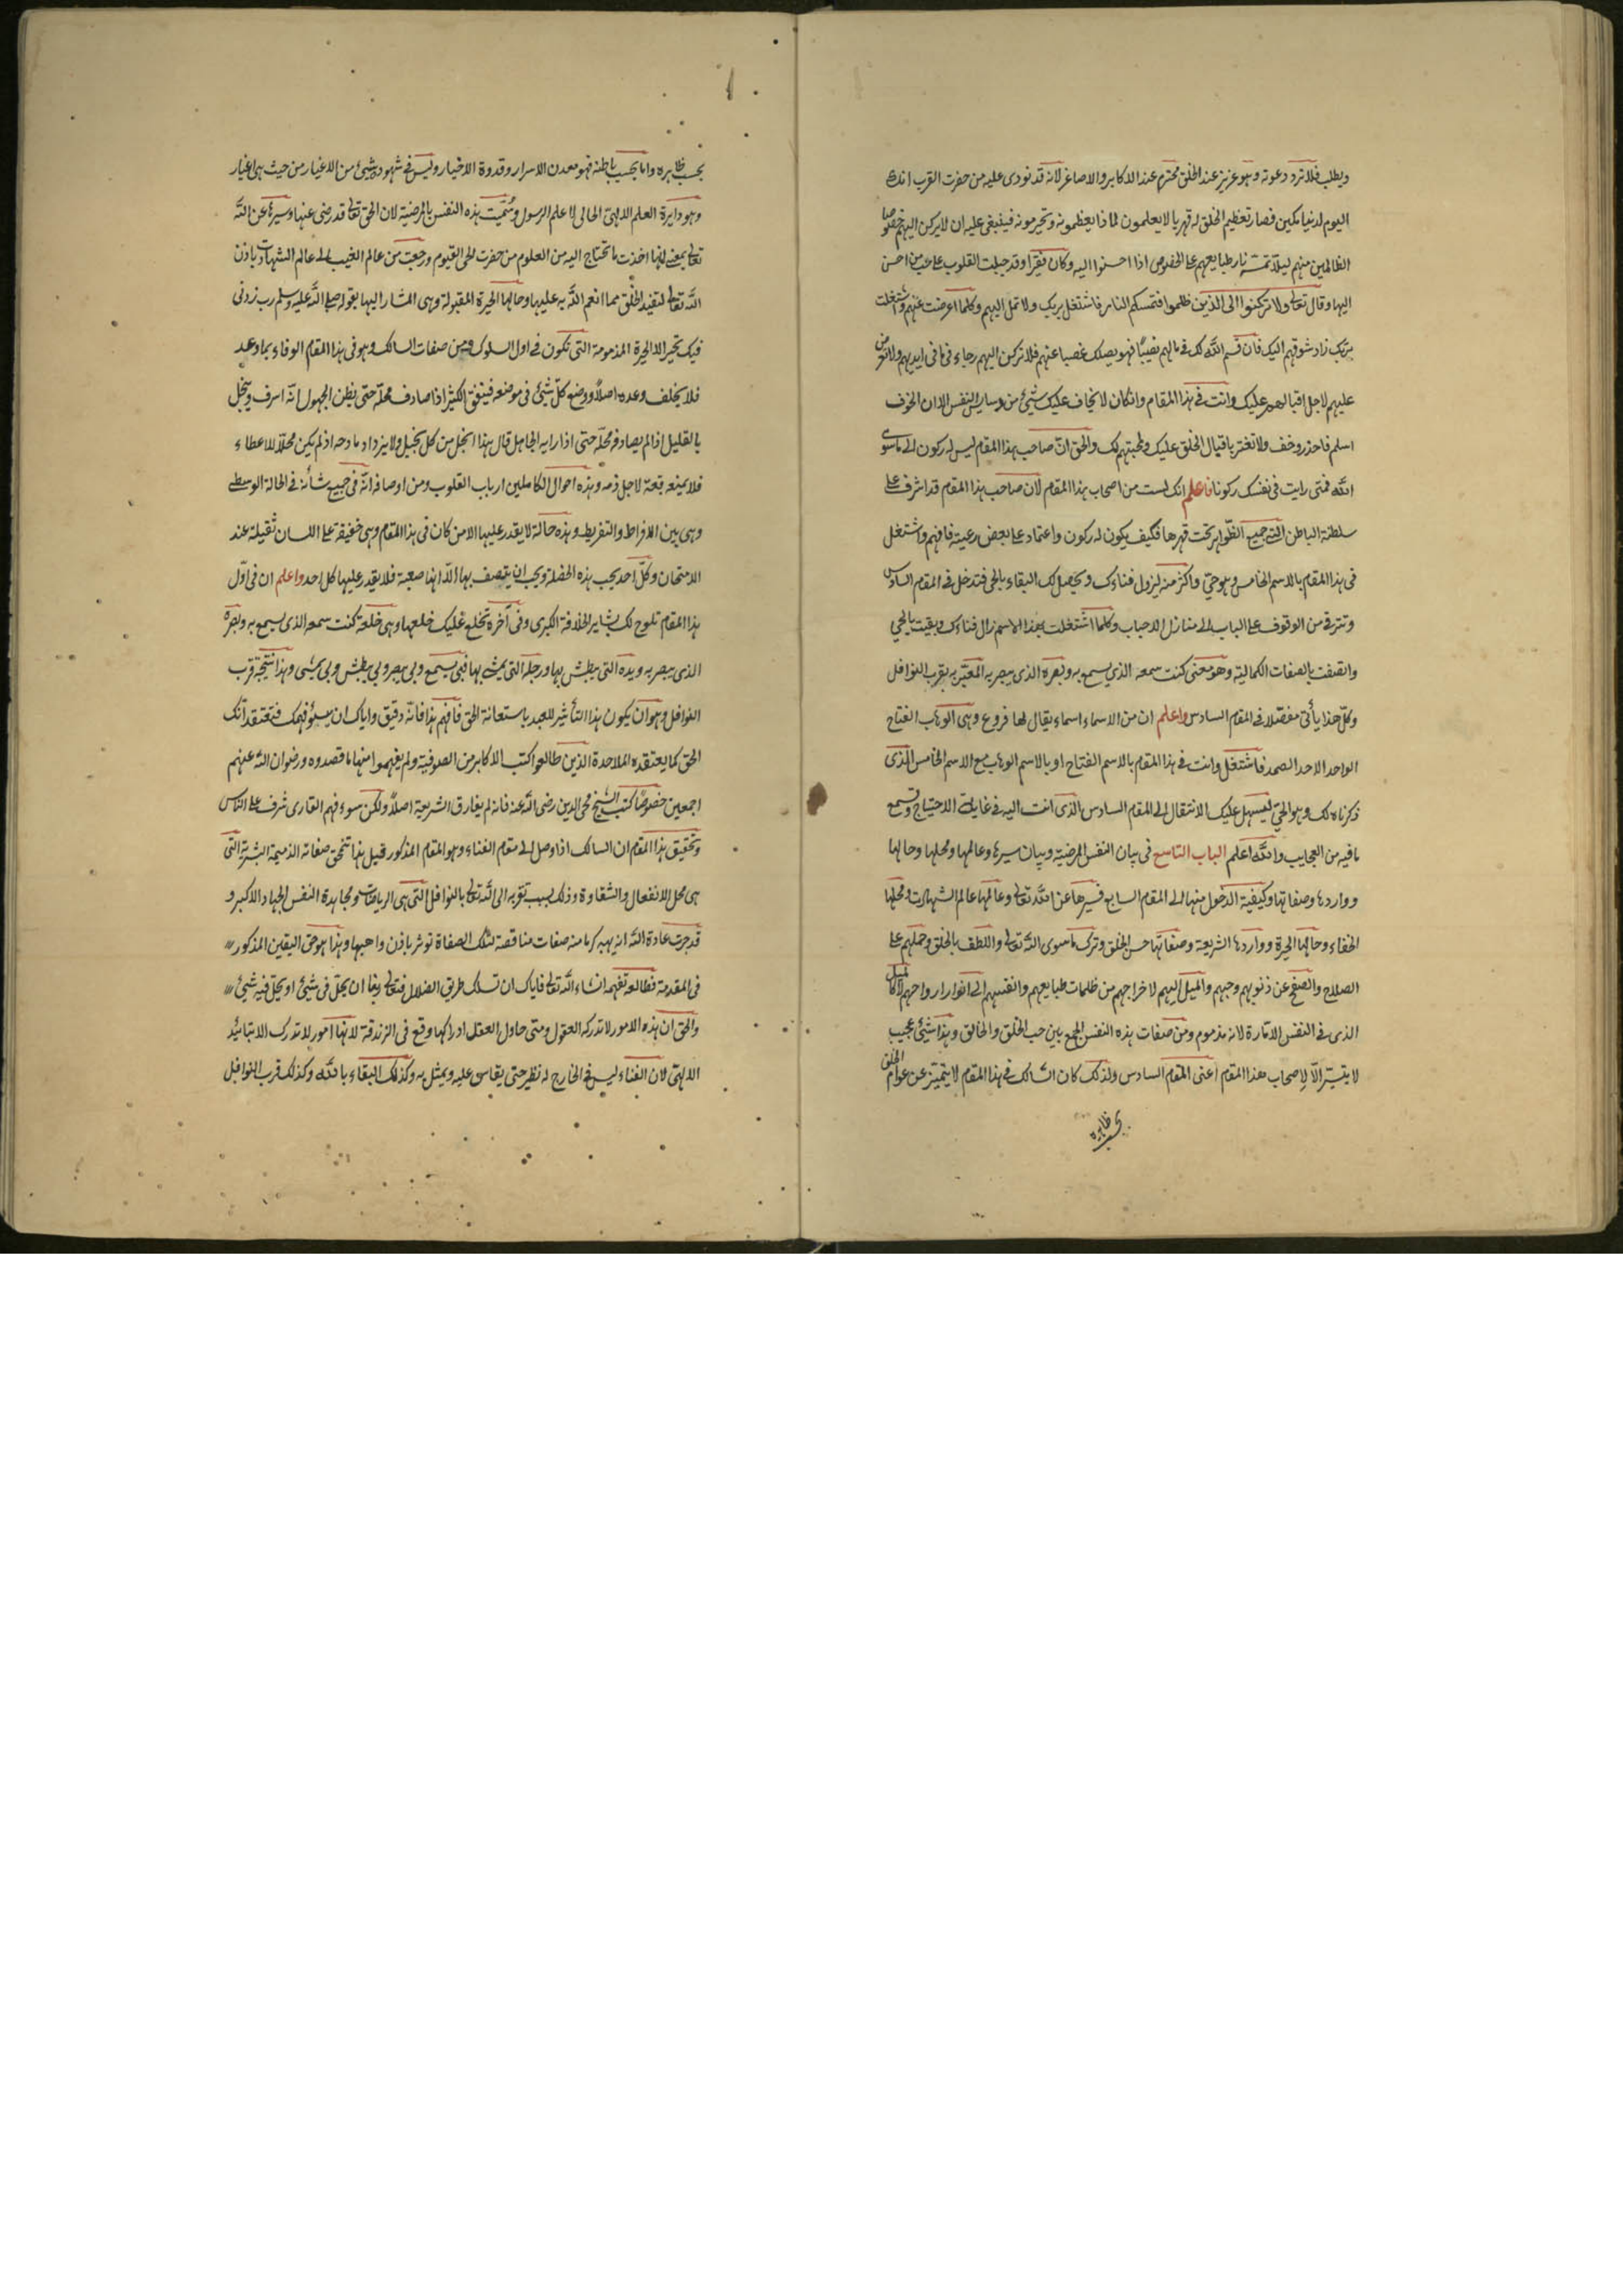 ويطلب فلا ترد دعوته وهو عزيز عند الخلق محترم عند الاكابر والاصاغر لانه قد نودى عليه من حضرت القرب انك
اليوم لدينا مكين فصار تعظيم الخلق له قهريا لا يعلمون لماذا يعظمونه ويحترمونه فينبغى عليه ان لا يركن اليهم خصوصا
الظالمين منهم ليلا تمسّه نار طبايعهم على الخصوص اذا احسنوا اليه وكان فقيرا وقد جبلت القلوب على حب من احسن
اليها وقال تعالى ولا تركنوا الى الذين ظلموا فتمسكم النار فاشتغل بربك ولا تمل اليهم وكلما اعرضت عنهم واشتغلت
بربّك زاد شوقهم اليك فان قسم الله لك فى مالهم نصيبًا فهو يصلك غصبا عنهم فلا تركن اليهم رجاء فى ما فى ايديهم ولا تعرض
عليهم لاجل اقبالهم عليك وانت فى هذا المقام وان كان لا يخاف عليك شيئ من دسايس النفس الا ان الخوف
اسلم فاحذر وخف ولا تغتر باقبال الخلق عليك ومحبتهم لك والحق ان صاحب هذا المقام ليس له ركون الى ما سوى
الله فمتى رايت فى نفسك ركونا فاعلم انك لست من اصحاب هذا المقام لان صاحب هذا المقام قد اشرف على
سلطنة الباطن التى جميع الظواهر تحت قهرها فكيف يكون له ركون واعتماد على بعض رعيته فافهم واشتغل
فى هذا المقام بالاسم الخامس وهو حىّ واكثر منه ليزول فناءك ويحصل لك البقاء بالحى فتدخل فى المقام السادس
وتترقى من الوقوف على الباب الى منازل الاحباب وكلما اشتغلت بهذا الاسم زال فناءك وبقيت بالحي
واتصفت بالصفات الكمالية وهو معنى كنت سمعه الذي يسمع به وبصره الذى يبصر به المعبّر به بقرب النوافل
وكلّ هذا يأتى مفصّلا فى المقام السادس واعلم ان من الاسماء اسماء يقال لها فروع وهى الوهاب الفتاح
الواحد الاحد الصمد فاشتغل وانت فى هذا المقام بالاسم الفتاح او بالاسم الوهاب مع الاسم الخامس الذى
ذكرناه لك وهو الحىّ ليسهل عليك الانتقال الى المقام السادس الذى انت اليه فى غاية الاحتياج وتسمع
ما فيه من العجايب والله اعلم الباب التاسع فى بيان النفس المرضية وبيان سيرها وعالمها ومحلها وحالها
وواردها وصفاتها وكيفية الدخول منها الى المقام السابع فسيرها عن الله تعالى وعالمها عالم الشهادت ومحلها
الخفاء وحالها الحيرة وواردها الشريعة وصفاتها حسن الخلق وترك ما سوى الله تعالى واللطف بالخلق وحملهم على
الصلاح والصفح عن ذنوبهم وحبهم والميل اليهم لاخراجهم من ظلمات طبايعهم وانفسهم الى انوار ارواحهم لا كالميل
الذى فى النفس الامّارة لانه مذموم ومن صفات هذه النفس الجمع بين حب الخلق والخالق وهذا شيئ عجيب
لا يتيسّر الّا لاصحاب هذا المقام اعنى المقام السادس ولذلك كان السالك فى هذا المقام لا يتميّز عن عوام الخلق
بحسب ظاهره
بحسب ظاهره واما بحسب باطنه فهو معدن الاسرار وقدوة الاخيار وليس فى شهوده شيئ من الاغيار من حيث هى اغيار
وهو دايرة العلم الالهىّ الحالى لا علم الرسول وسُمّيت هذه النفس بالمرضية لان الحق تعالى قد رضى عنها وسيرها عن الله
تعالى بمعنى انها اخذت ما تحتاج اليه من العلوم من حضرت الحى القيوم ورجعت من عالم الغيب الى عالم الشهادت باذن
الله تعالى لتفيد الخلق مما انعم الله به عليها وحالها الحيرة المقبولة وهى المشار اليها بقوله صلى الله عليه وسلم رب زدنى
فيك تحيرا لا الحيرة المذمومة التى تكون فى اول السلوك ومن صفات السالك وهو فى هذا المقام الوفاء بما وعد
فلا يخلف وعده اصلاً ووضع كلّ شيئ فى موضعه فينفق الكثير اذا صادف محلّه حتى يظن الجهول انّه اسرف ويبخل
بالقليل اذا لم يصادف محلّه حتى اذا رايه الجاهل قال هذا ابخل من كل بخيل ولا يزداد مادحه اذ لم يكن محلّا للاعطاء
فلا يمنعه قبحة لاجل ذمه وهذه احوال الكاملين ارباب القلوب ومن اوصافه انّه فى جميع شأنه فى الحالة الوسطى
وهى بين الافراط والتفريط وهذه حالة لا يقدر عليها الا من كان فى هذا المقام وهى خفيفة على اللسان ثقيلة عند
الامتحان وكلّ احد يحب هذه الخصلة ويحب ان يتصف بها الّا انها صعبة فلا يقدر عليها كل احد واعلم ان فى اوّل
هذا المقام تلوح لك بشاير الخلافة الكبرى وفى آخره تخلع عليك خلعها وهى خلعة كنت سمعه الذى يسمع به وبصره
الذى يبصر به ويده التى يبطش بها ورجله التى يمشى بها فبى يسمع وبى يبصر وبى يبطش وبى يمشى وهذا نتيجة قرب
النوافل وهو ان يكون هذا التأثير للعبد باستعانة الحق فافهم هذا فانه دقيق واياك ان يسوء فهمك فتعتقد انك
الحق كما يعتقده الملاحدة الذين طالعوا كتب الاكابر من الصوفية ولم يفهموا منها ما قصدوه ورضوان الله عنهم
اجمعين خصوصًا كتب الشيخ محى الدين رضى الله عنه فانه لم يفارق الشريعة اصلاً ولكن سوء فهم القارى شرف على الناس
وتحقيق هذا المقام ان السالك اذا وصل الى مقام الفناء وهو المقام المذكور قبل هذا تتمحق صفاته الذميمة البشرية التى
هى محل الانفعال والشقاوة وذلك بسبب تقربه الى الله تعالى بالنوافل التى هى الرياضات ومجاهدة النفس الجهاد الاكبر و
قد جرت عادة الله انه يهبه كرما منه صفات مناقضة لتلك الصفاة توثر باذن واهبها وهذا هو حق اليقين المذكور
فى المقدمة فطالعه تفهمه انشاء الله تعالى فاياك ان تسلك طريق الضلال فتعالى ربنا ان يحلّ فى شيئ او يحلّ فيه شيئ
والحق ان هذه الامور لا تدركه العقول ومتى حاول العقل ادراكها وقع فى الزندقة لانها امور لا تدرك الا بتائيد
الالهىّ لان الفناء ليس فى الخارج له نظير حتى يقاس عليه ويمثل به وكذلك البقاء بالله وكذلك قرب النوافل